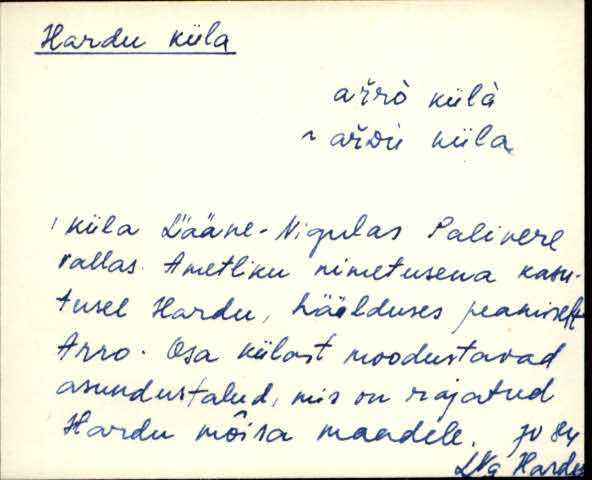 Hardu küla
ařrò külà
~ ařDù küla
küla Lääne-Nigulas Palivere
vallas. Ametliku nimetusena kasu-
tusel Hardu, häälduses peamiselt
Arro. Osa külast moodustavad
asundustalud, mis on rajatud
Hardu mõisa maadele. JV 84
LNg Hardu